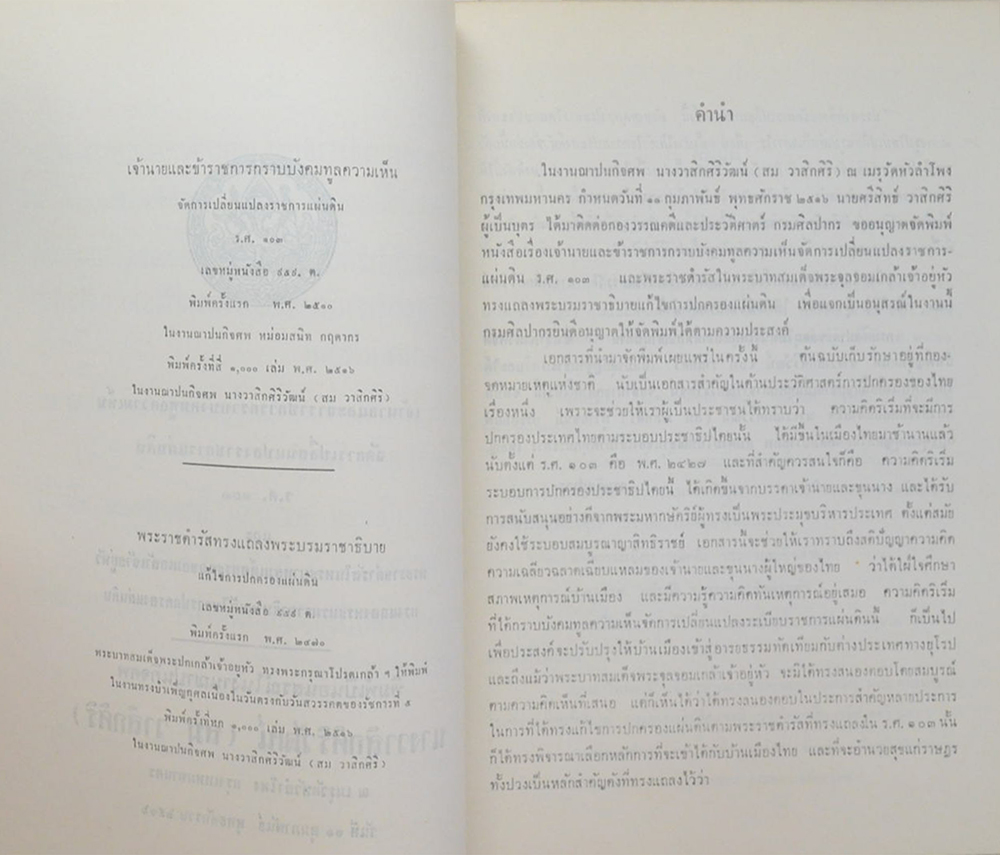 เจ้านายและข้าราชการกราบบังคมทูลความเห็น
จัดการเปลี่ยนแปลงราชการแผ่นดิน
ร.ศ. ๑๐๓
เลขหมู่หนังสือ ๙๕๙. ค.
พิมพ์ครั้งแรก พ.ศ. ๒๕๑๐
ในงานฌาปนกิจศพ หม่อมสนิท กฤดากร
พิมพ์ครั้งที่สี่ ๑,๐๐๐ เล่ม พ.ศ. ๒๕๑๖
ในงานฌาปนกิจศพ นางวาสิกศิริวัฒน์ (สม วาสิกศิริ)
พระราชดำรัสทรงแถลงพระบรมราชาธิบาย
แก้ไขการปกครองแผ่นดิน
เลขหมู่หนังสือ ๙๕๙ ค.
พิมพ์ครั้งแรก พ.ศ. ๒๔๗๐
พระบาทสมเด็จพระปกเกล้าเจ้าอยู่หัว ทรงพระกรุณาโปรดเกล้า ฯ ให้พิมพ์
ในงานทรงบำเพ็ญกุศลเนื่องในวันตรงกับวันสวรรคตของรัชการที่ ๕
พิมพ์ครั้งที่หก ๑,๐๐๐ เล่ม พ.ศ. ๒๕๑๖
ในงานฌาปนกิจศพ นางวาสิกศิริวัฒน์ (สม วาสิกศิริ)
คำนำ
ในงานฌาปนกิจศพ นางวาสิกศิริวัฒน์ (สม วาสิกศิริ) ณ เมรุวัดหัวลำโพง
กรุงเทพมหานคร กำหนดวันที่ ๑๑ กุมภาพันธ์ พุทธศักราช ๒๕๑๖ นายศรีสิทธิ์ วาสิกศิริ
ผู้เป็นบุตร ได้มาติดต่อกองวรรณคดีและประวัติศาตร์ กรมศิลปากร ขออนุญาตจัดพิมพ์
หนังสือเรื่องเจ้านายและข้าราชการกราบบังคมทูลความเห็นจัดการเปลี่ยนแปลงราชการ-
แผ่นดิน ร.ศ. ๑๐๓ และพระราชดำรัสในพระบาทสมเด็จพระจุลจอมเกล้าเจ้าอยู่หัว
ทรงแถลงพระบรมราชาธิบายแก้ไขการปกครองแผ่นดิน เพื่อแจกเป็นอนุสรณ์ในงานนี้
กรมศิลปากรยินดีอนุญาตให้จัดพิมพ์ได้ตามความประสงค์
เอกสารที่นำมาจัดพิมพ์เผยแพร่ในครั้งนี้ ต้นฉบับเก็บรักษาอยู่ที่กอง-
จดหมายเหตุแห่งชาติ นับเป็นเอกสารสำคัญในด้านประวัติศาสตร์การปกครองของไทย
เรื่องหนึ่ง เพราะจะช่วยให้เราผู้เป็นประชาชนได้ทราบว่า ความคิดริเริ่มที่จะมีการ
ปกครองประเทศไทยตามระบอบประชาธิปไตยนั้น ได้มีขึ้นในเมืองไทยมาช้านานแล้ว
นับตั้งแต่ ร.ศ. ๑๐๓ คือ พ.ศ. ๒๔๒๗ และที่สำคัญควรสนใจก็คือ ความคิดริเริ่ม
ระบอบการปกครองประชาธิปไตยนี้ ได้เกิดขึ้นจากบรรดาเจ้านายและขุนนาง และได้รับ
การสนับสนุนอย่างดีจากพระมหากษัตริย์ผู้ทรงเป็นพระประมุขบริหารประเทศ ตั้งแต่สมัย
ยังคงใช้ระบอบสมบูรณาญาสิทธิราชย์ เอกสารนี้จะช่วยให้เราทราบถึงสติปัญญาความคิด
ความเฉลียวฉลาดเฉียบแหลมของเจ้านายและขุนนางผู้ใหญ่ของไทย ว่าได้ใฝ่ใจศึกษา
สภาพเหตุการณ์บ้านเมือง และมีความรู้ความคิดทันเหตุการณ์อยู่เสมอ ความคิดริเริ่ม
ที่ได้กราบบังคมทูลความเห็นจัดการเปลี่ยนแปลงระเบียบราชการแผ่นดินนี้ ก็เป็นไป
เพื่อประสงค์จะปรับปรุงให้บ้านเมืองเข้าสู่อารยธรรมทัดเทียมกับต่างประเทศทางยุโรป
และถึงแม้ว่าพระบาทสมเด็จพระจุลจอมเกล้าเจ้าอยู่หัว จะมิได้ทรงสนองตอบโดยสมบูรณ์
ตามความคิดเห็นที่เสนอ แต่ก็เห็นได้ว่าได้ทรงสนองตอบในประการสำคัญหลายประการ
ในการที่ได้ทรงแก้ไขการปกครองแผ่นดินตามพระราชดำรัสที่ทรงแถลงใน ร.ศ. ๑๐๓ นั้น
ก็ได้ทรงพิจารณาเลือกหลักการที่จะเข้าได้กับบ้านเมืองไทย และที่จะอำนวยสุขแก่ราษฎร
ทั้งปวงเป็นหลักสำคัญดังที่ทรงแถลงไว้ว่า